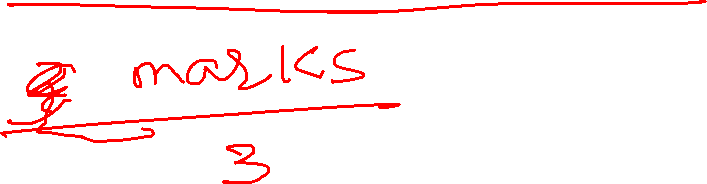 marks
3